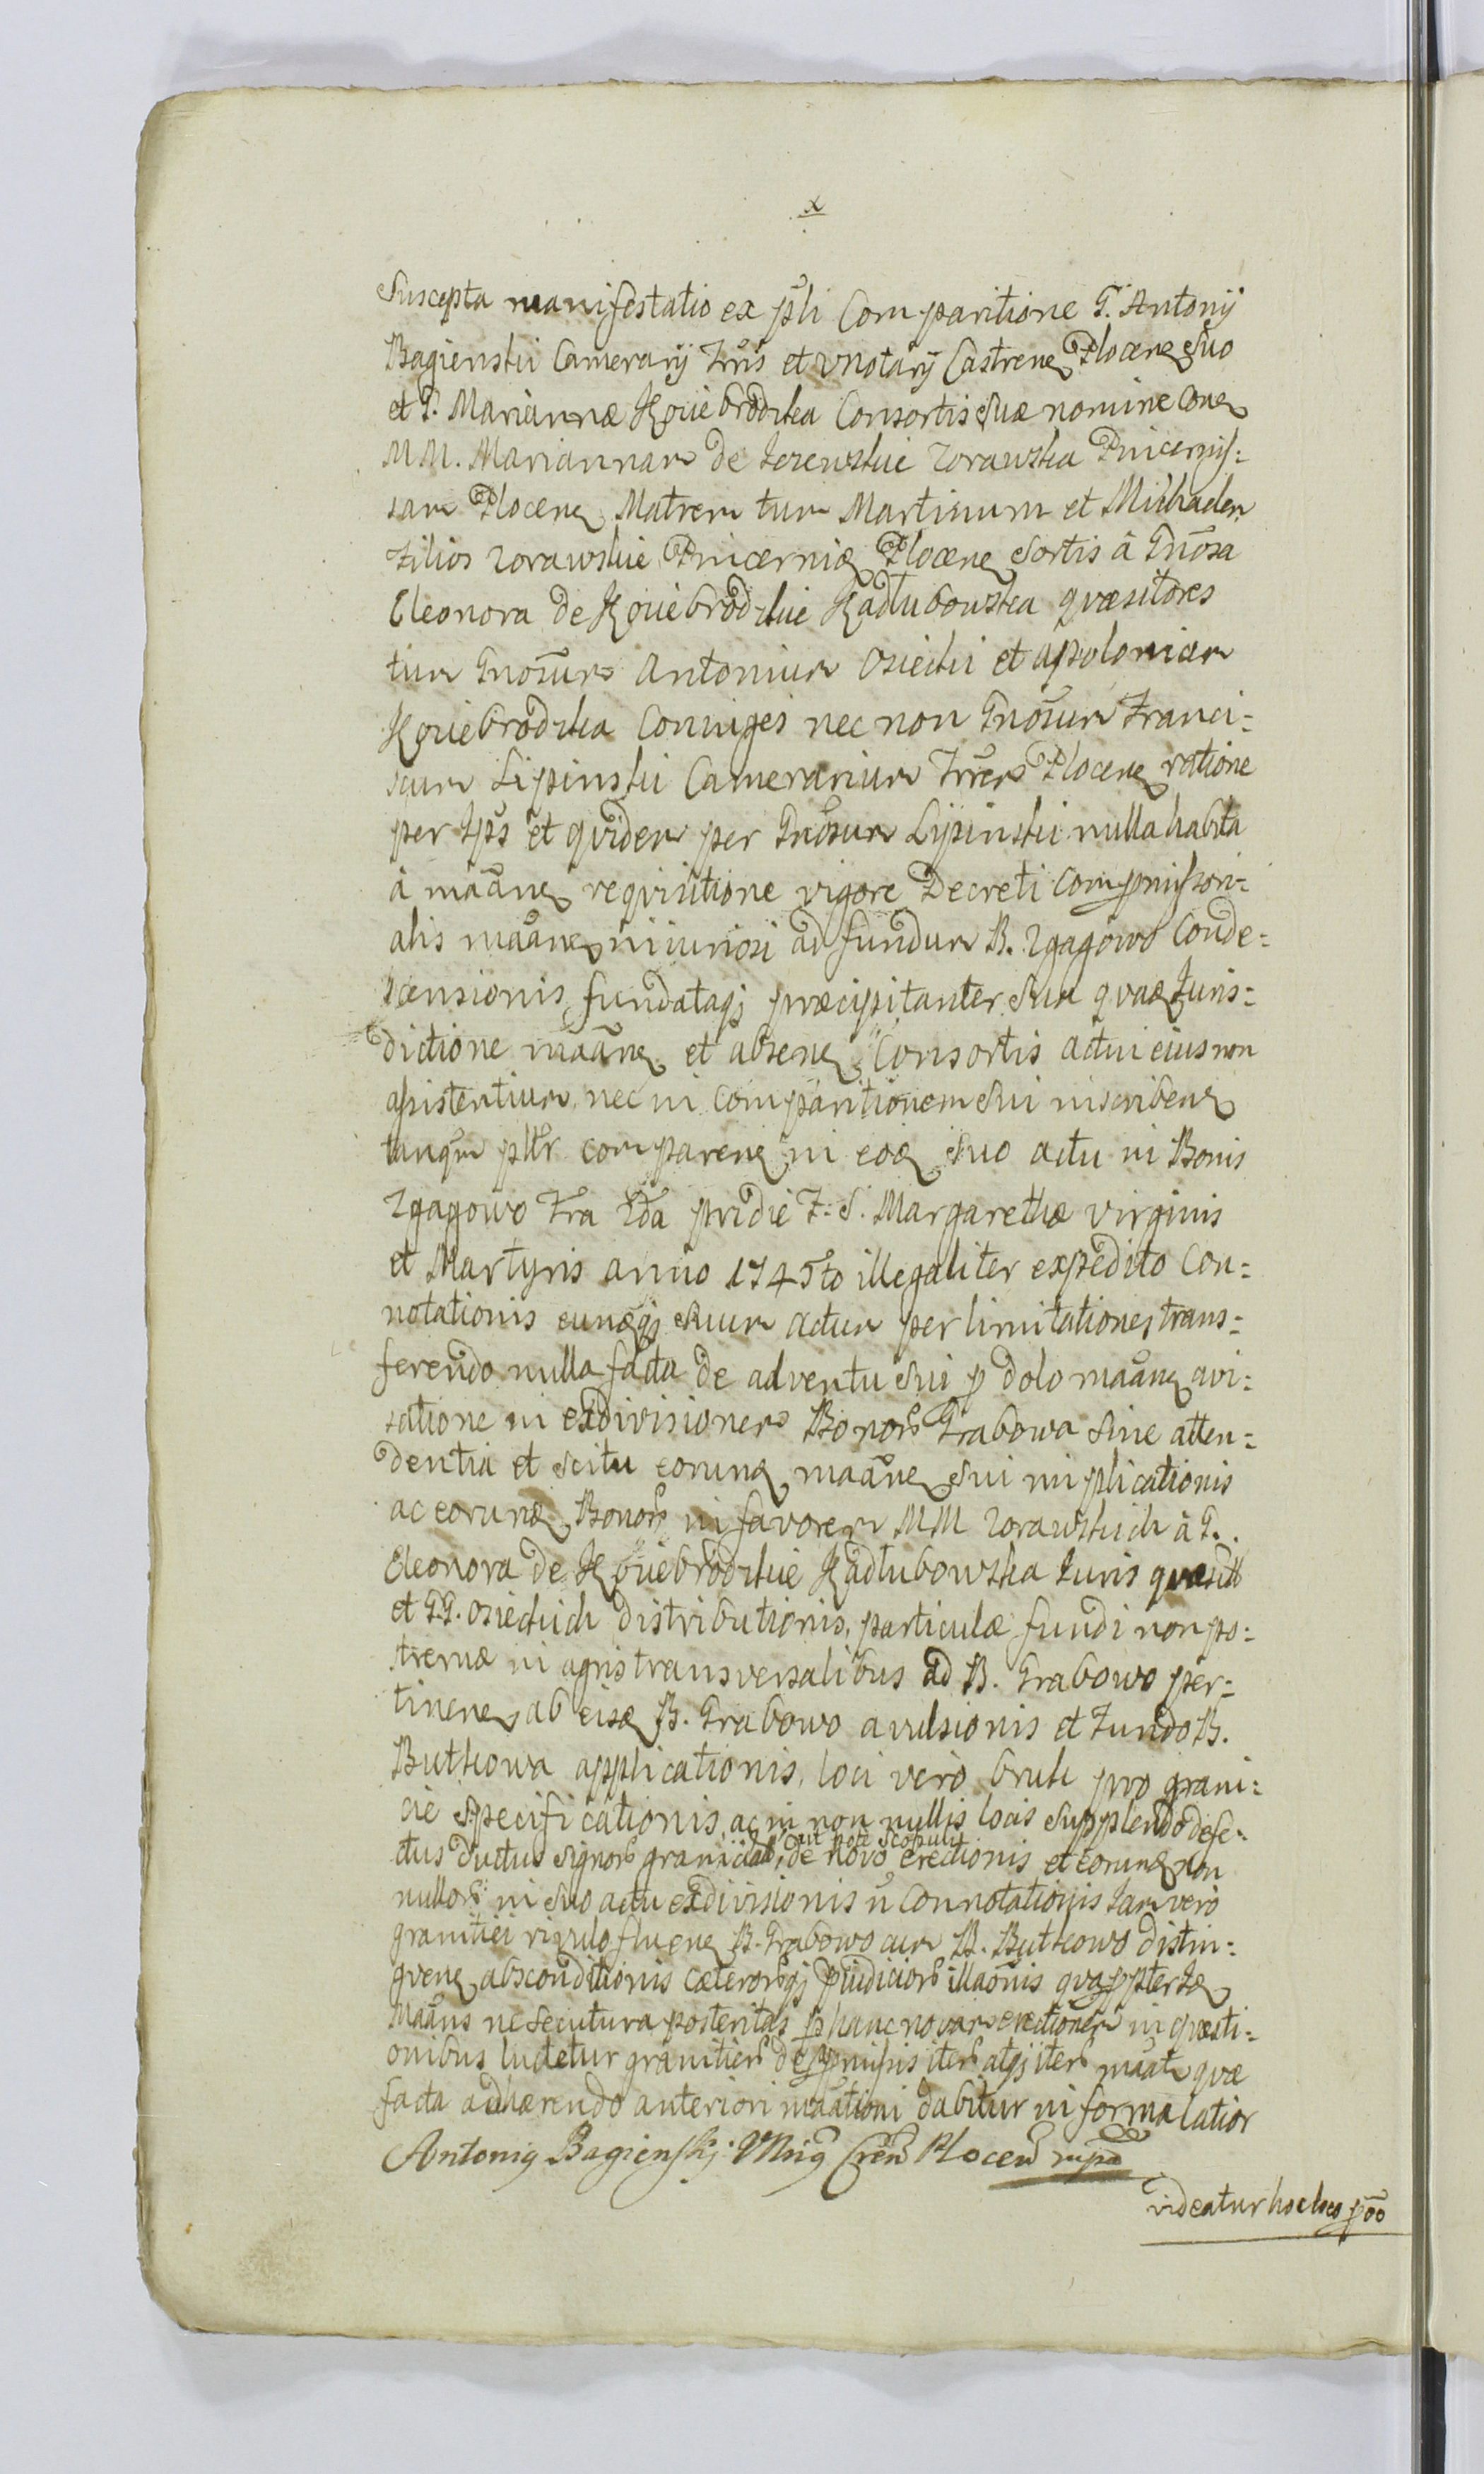 x
Suscepta manifestatio ex pñli Comparitione G. Antonij
Bagienski Camerarij Trris et vnotarij Castreneȝ Ploceneȝ Suo
et G. Mariannæ Koziebrodzka Consortis Suæ nomine Coneȝ
MM. Mariannam de Jezewskie Zorawska Pincernis=
sam Ploceneȝ Matrem tum Martinum et Michaelem
Filios Zorawskie Pincerniȝ Ploceneȝ Sortis à Gnõsa
Eleonora de Koziebrodzkie Kadłubowska quæsitores
tum Gnosum Antonium Osiecki et Apoloniam
Koziebrodzka Coniuges nec non Gnosum Franci=
scum Lipinski Camerarium Trrem Ploceneȝ ratione
per Ips et qvidem per Gnosum Lipinski nulla habita
à maãneȝ reqvisitione vigore Decreti Compromissori=
alis maãneȝ iniuriosi ad fundum B. Zgagowo Conde=
scensionis fundataqȝ præcipitanter Sua qvaȝ Juris=
dictione maãneȝ et abseneȝ Consortis actui eius non
assistentium, nec in Comparitionem Sui inscribeneȝ
tanqm plłr compareneȝ in eoȝ Suo actu in Bonis
Zgagowo Fra 2da pridie F. S. Margarethæ virginis
et Martyris anno 1745to illegaliter expedito Con=
notationis eunȝqȝ Suum actum per limitationes trans=
ferendo nulla facta de adventu Sui p dolo maãneȝ avi=
satione in exdivisionem Bonor Grabowa Sine atten=
dentia et Scitu eorunȝ maãneȝ Sui implicationis
ac eorunȝ Bonor in favorem MM Zorawskich à G.
Eleonora de Koziebrodzkie Kadłubowska Juris qvæsitt
et GG. Osieckich distributionis, particulæ fundi non po=
stremæ in agris transversalibus ad B. Grabowo per=
tineneȝ ab eisȝ B. Grabowo avulsionis et Fundo B.
Buthowa applicationis, loci verò bruk pro grani=
cie Specificationis, ac in non nullis locis Supplendo defe=
ctus ductus Signor graniciał, ut pote Scopuli
de novo erectionis et eorunȝ non
nullor in Suo actu exdivisionis ñ Connotationis Jam verò
granitiei rivulo flueneȝ B. Grabowo cum B. Buthowo distin=
gveneȝ absconditionis cæterorqȝ pjudicior illaõnis qvapppterȝ
Maãns ne Secutura posteritas p hanc novam erectionem in qvæsti=
onibus ludetur granitier de ppmissis iter atqȝ iter maãt qvæ
facta adhærendo anteriori maãtioni dabitur in forma latior
Antonig Bagienski VNrig Cren Plocen mpa
videatur hoc loco põo